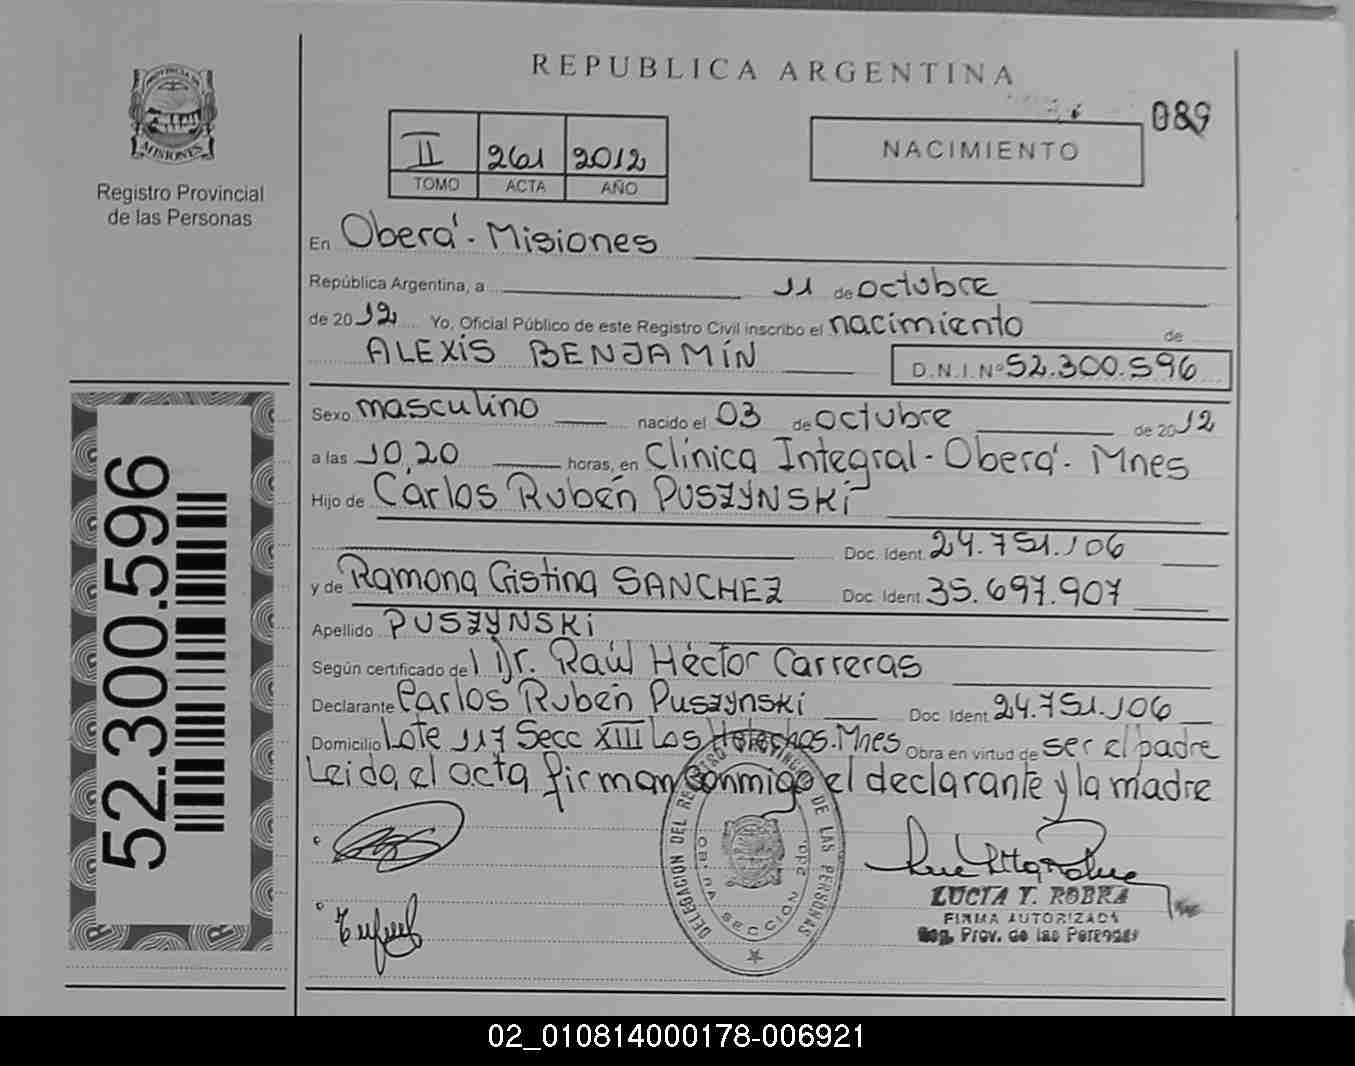 REPUBLICA ARGENTINA
089
PROVINCIA DE
MISIONES
Registro Provincial
de las Personas
II 261 2012
TOMO ACTA AÑO
NACIMIENTO
En Oberá - Misiones
República Argentina, a 11 de octubre
de 2012 Yo, Oficial Público de este Registro Civil inscribo el nacimiento de
ALEXIS BENJAMÍN D.N.I. Nº 52.300.596
Sexo masculino nacido el 03 de octubre de 2012
a las 10,20 horas, en Clínica Integral - Oberá - Mnes
Hijo de Carlos Rubén PUSZYNSKI
Doc. Ident. 24.751.106
y de Ramona Cristina SANCHEZ Doc. Ident. 35.697.907
Apellido PUSZYNSKI
Según certificado del Dr. Raúl Héctor Carreras
Declarante Carlos Rubén Puszynski Doc. Ident. 24.751.106
Domicilio Lote 117 Secc XIII Los Helechos. Mnes Obra en virtud de ser el padre
Leida el acta firman conmigo el declarante y la madre
DELEGACION DEL REGISTRO PROVINCIAL DE LAS PERSONAS
SECCION
LUCIA Y. ROBRA
FIRMA AUTORIZADA
Reg. Prov. de las Personas
52.300.596
02_010814000178-006921